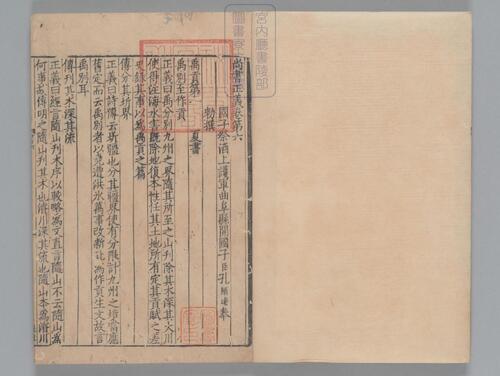 尚書正義卷第六
國子祭酒上護軍曲阜縣開國子臣孔穎達奉
勑撰
禹貢第一 夏書
禹別至作貢
正義曰禹分別九州之界隨其所至之山刊除其木深其大川
使得注海水害既除地復本性任其土地所有定其貢賦之差
史錄其事以為禹貢之篇
傳分其圻界
正義曰詩傳云圻疆也分其疆界使有分限計九州之境當應
舊定而云禹別者以堯遭洪水萬事改新此為作貢生文故言
禹別耳
傳刊其木深其流
正義曰經言隨山刊木序以較略為文直言隨山不云隨山為
何事故傳明之隨山刊其木也濬川深其流也隨山本為濬川
宮内廳書陵部
圖書寮